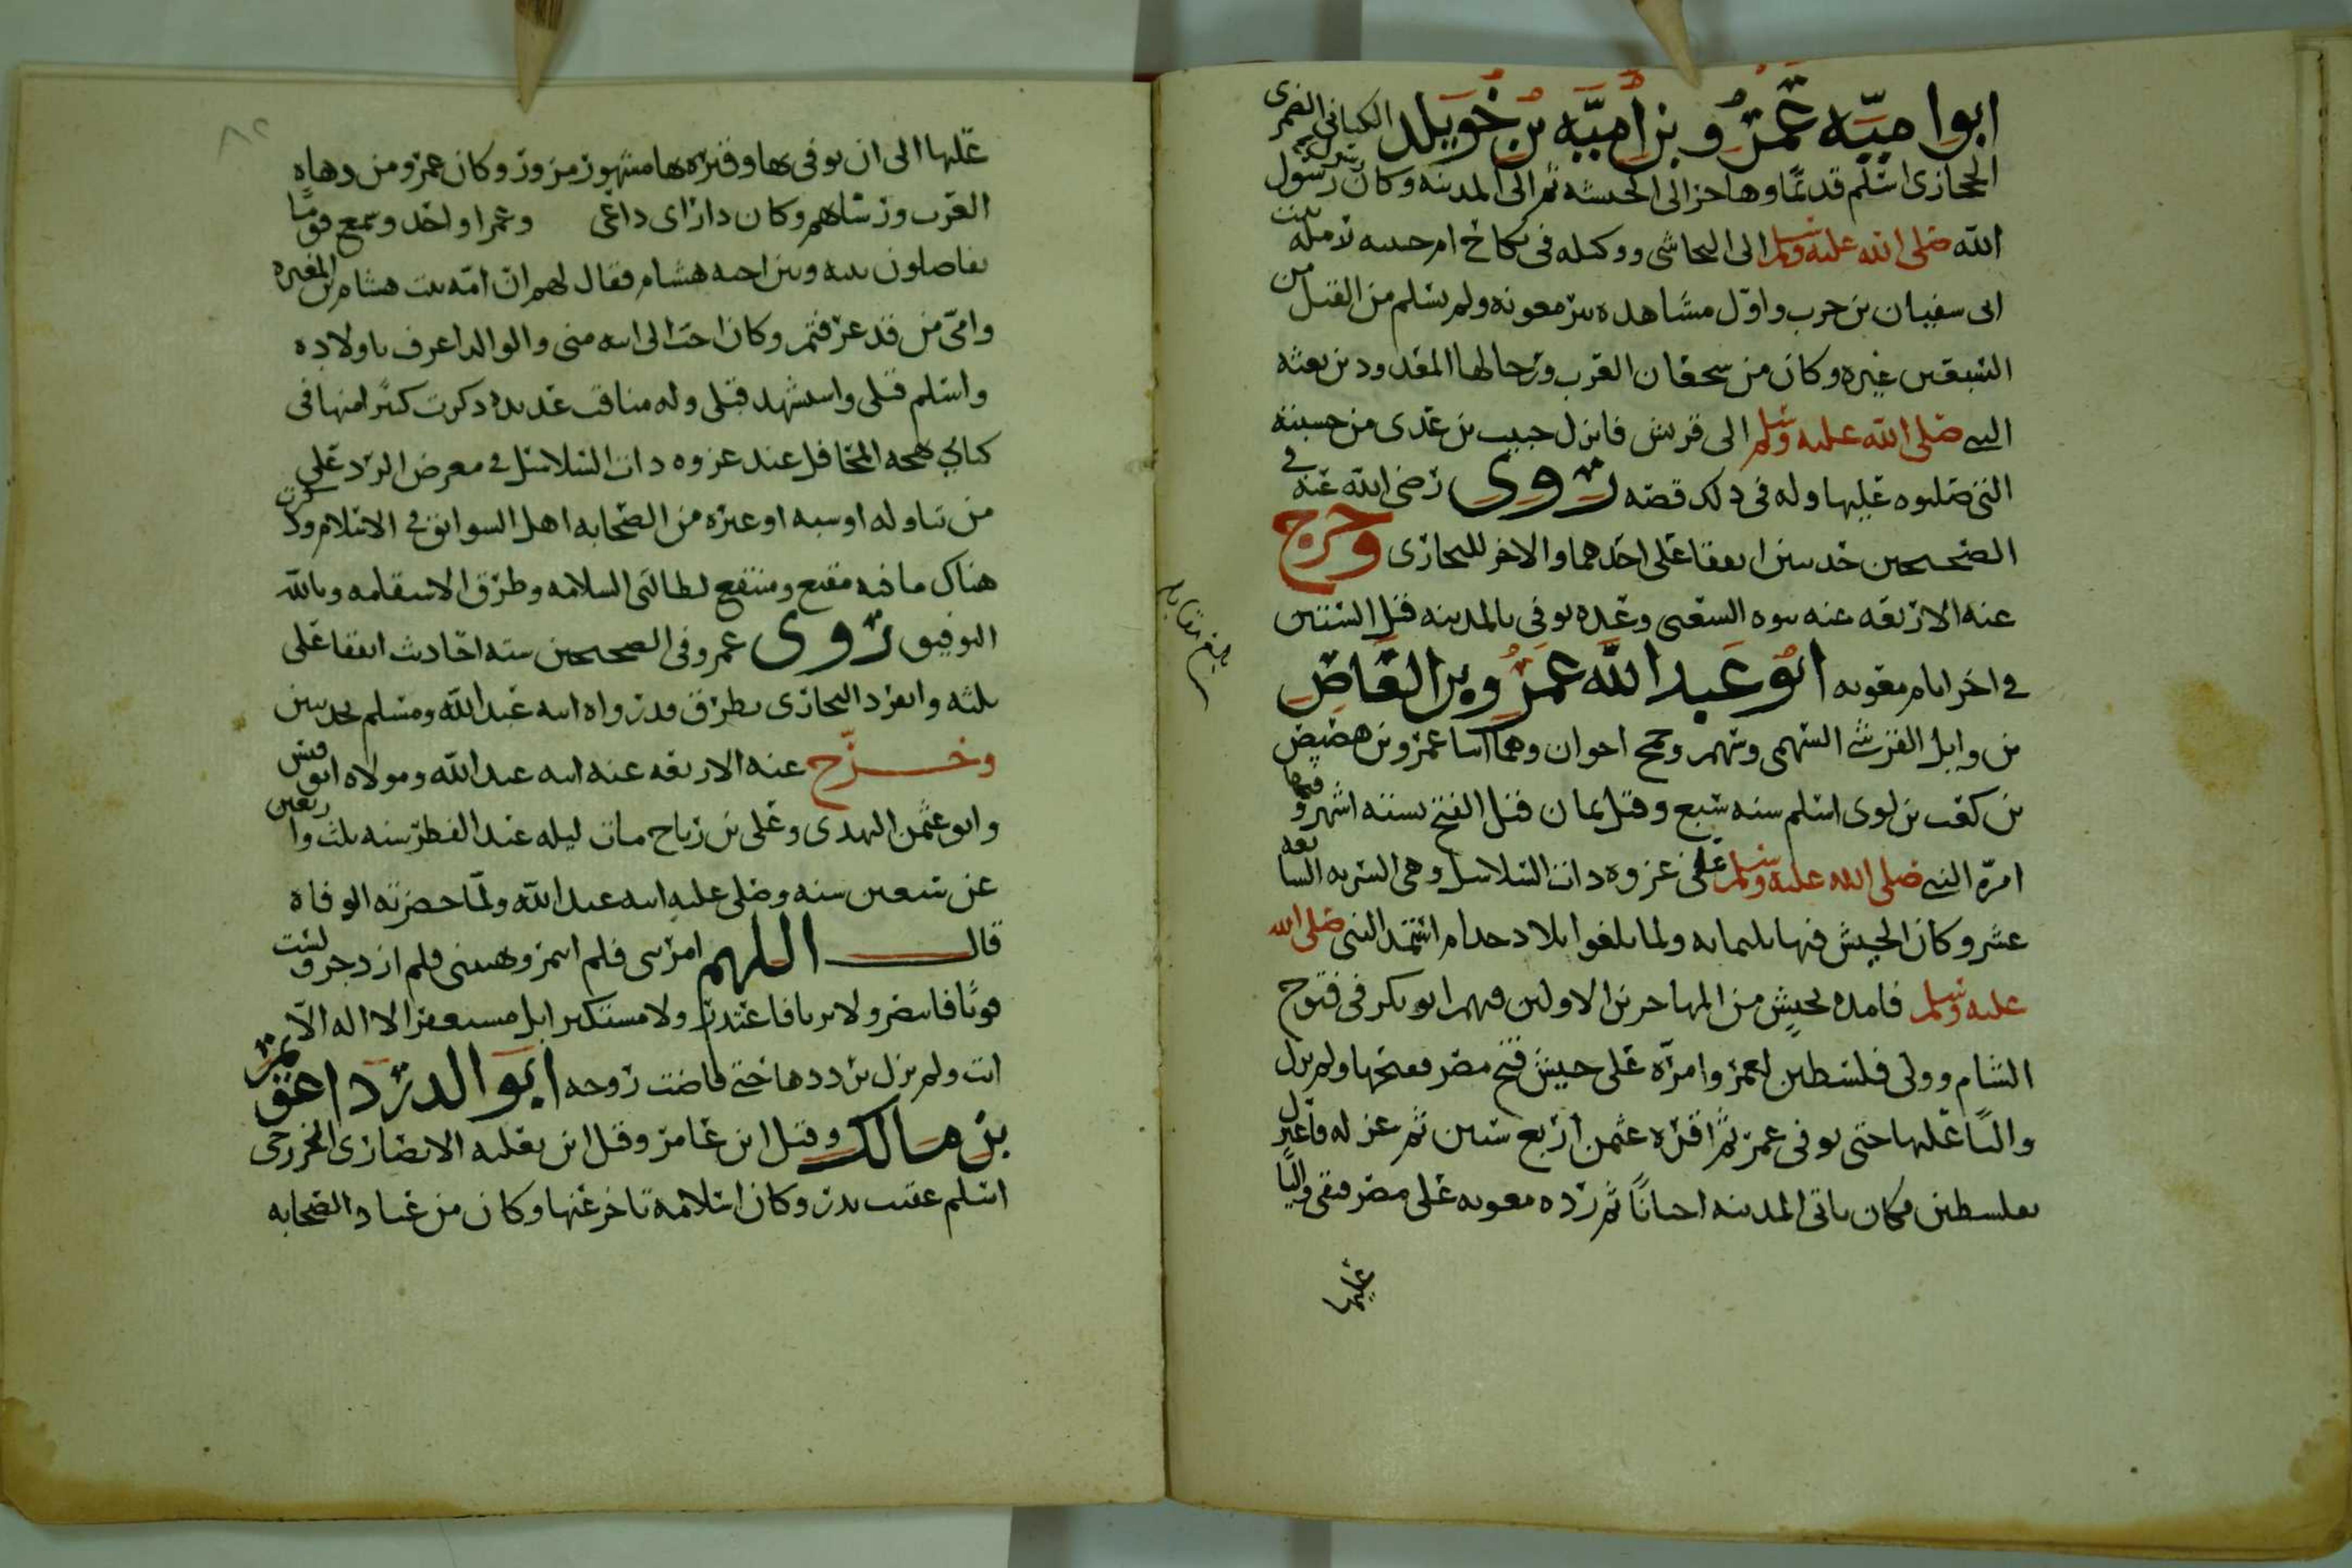 ابوا ميّه عَمْرُو بن اُميَّه بن خُوَيلد الكنانى الضمرى
الحجازى اسلم قديمًا وهاجر الى الحبشه ثم الى المدينه وكان رسول رسول
الله صلى الله عليه وسلم الى النجاشى ووكيله فى نكاح ام حبيبه رمله بنت
ابى سفيان بن حرب واوّل مشاهده بئر معونه ولم يسلم من القتل من
السبعين غيره وكان من شجعان العرب ورجالها المعدودين بعثه
النبى صلى الله عليه وسلم الى قريش فانزل خبيب بن عدى من خشبته
التى صلبوه عليها وله فى ذلك قصه روى رضى الله عنه فى
الصحيحين حديثين اتفقا على احدهما والاخر للبخارى وخرج
عنه الاربعه عنه بنوه الشعبى وغيره توفى بالمدينه قبل الستين
فى اخر ايام معويه ابو عَبد الله عمرُو بن العَاص
بن وايل القرشى السهمى وسهم وجمح اخوان وهما ابنا عمرو بن هصيص
بن كعب بن لوى اسلم سنه سبع وقيل ثمان قبل الفتح بستة اشهر وفيها
امرّه النبى صلى الله عليه وسلم على غزوه ذات السلاسل وهى السريه السابعه
عشر وكان الجيش فيها ثلثمايه ولما بلغوا بلاد جدام استمد النبى صلى الله
عليه وسلم فامده بجيش من المهاجرين الاولين فيهم ابو بكر فى فتوح
الشام وولى فلسطين لعمر وامرّه على جيش فتح مصر ففتحها ولم يزل
واليًا عليها حتى توفى عمر ثم اقره عثمن اربع سنين ثم عزله فاعتزل
بفلسطين فكان ياتى المدينه احيانًا ثم رده معويه على مصر فبقى واليًا
عليها
عليها الى ان توفى بها وقبره بها مشهور مزور وكان عمرو من دهاه
العرب ورؤساهم وكان دا راى داعى وعمرا واحد وسمع قومًا
يفاضلون بينه وبين اخيه هشام فقال لهم ان امّه بنت هشام بن المغيره
وامّى من قد عرفتم وكان احب الى ابيه منى والوالد اعرف باولاده
واسلم قبلى واستشهد قبلى وله مناقب عديده ذكرت كثيرًا منها فى
كتابى بهجه المحافل عند غزوه ذات السلاسل فى معرض الرد على
من تناوله اوسبه او غيره من الصحابه اهل السوابق فى الاسلام وذكرت
هناك ما فيه مقنع ومنتفع لطالبى السلامه وطرق الاستقامه وبالله
التوفيق روى عمرو فى الصحيحين سته احاديث اتفقا على
ثلثه وانفرد البخارى بطرق ورواه ابنه عبد الله ومسلم بحديثين
وخرّج عنه الاربعه عنه ابنه عبد الله ومولاه ابو قيس
وابو عثمن النهدى وعلى بن رباح مات ليله عيد الفطر سنه ثلث واربعين
عن تسعين سنه وصلى عليه ابنه عبد الله ولمّا حضرته الوفاه
قال اللهم امرتنى فلم اتمر ونهيتنى فلم ازدجر ولست
قويًا فانتصر ولا بريا فاعتدر ولا مستكبر ابل مستغفر الا اله الاّ
انت ولم يزل يرددها حتى فاضت روحه ابو الدرداء عويمر
بن مالك وقيل ابن عامر وقيل ابن ثعلبه الانصارى الخزرجى
اسلم عقيب بدر وكان اسلامه تاخر عنها وكان من عباد الصحابه